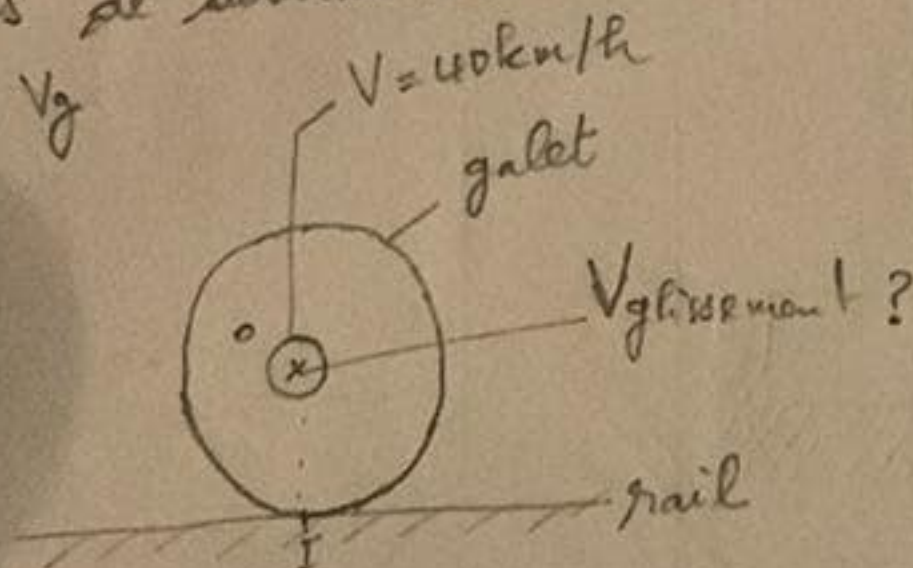 de
Vg
V = 40km/h
galet
o
x
Vglissement ?
rail
I